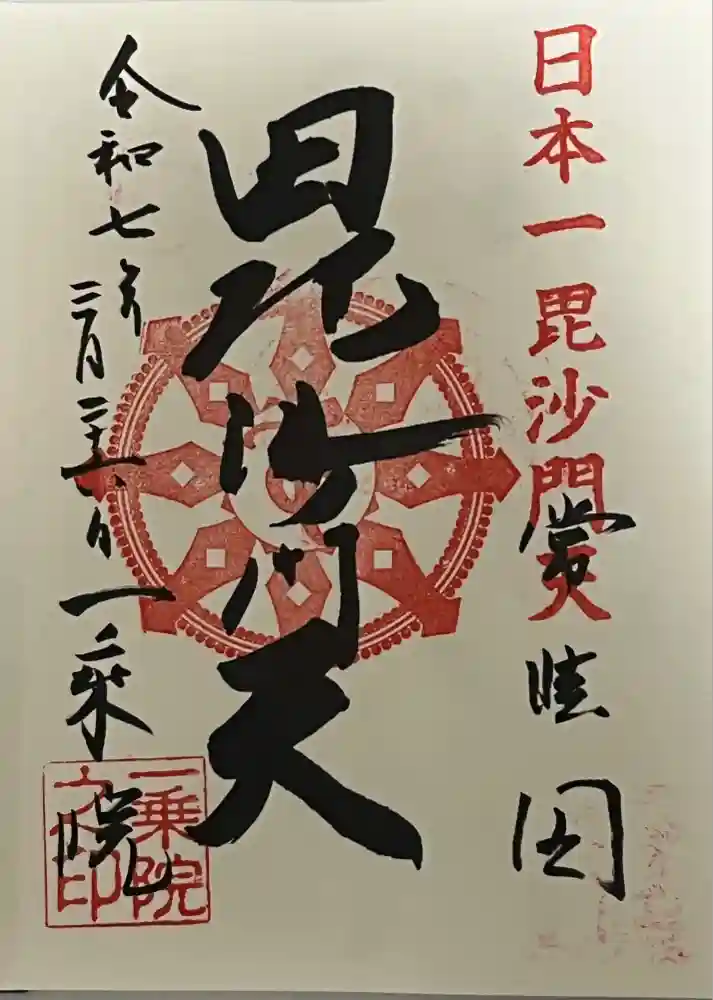 日本一毘沙門天
常陸国
毘沙門天
令和七年三月二十六日
一乗院
一乗院之印